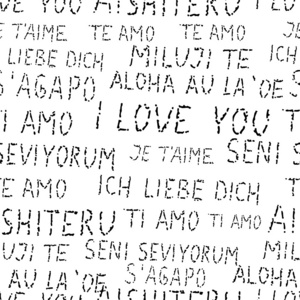 VE YOU AISHITERU
JE T'AIME TE AMO TE AMO
ICH LIEBE DICH MILUJI TE ICH
S'AGAPO ALOHA AU LA`OE S
TI AMO I LOVE YOU T
SEVIYORUM JE T'AIME SENI S
TE AMO ICH LIEBE DICH T
SHITERU TI AMO TI AMO AI
UJI TE SENI SEVIYORUM MIL
AU LA`OE S'AGAPO ALOHA
VE YOU AISHITERU I LO